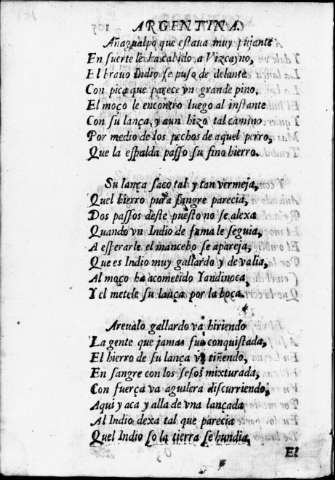 ARGENTINA.
Añagualpo que estaua muy pujante
En suerte le ha cabido a Vizcayno,
El brauo Indio se puso de delante
Con pica que parece vn grande pino.
El moço le encontro luego al instante
Con su lança, y aun hizo tal camino
Por medio de los pechos de aquel perro,
Que la espalda passo su fino hierro.
Su lança saco tal y tan vermeja,
Quel hierro pura sangre parecia,
Dos passos deste puesto no se alexa
Quando vn Indio de fama le seguia,
A esperarle el mancebo se apareja,
Que es Indio muy gallardo y de valia,
Al moço ha acometido Yandinoca,
Y el metele su lança por la boca.
Areualo gallardo va hiriendo
La gente que jamas fue conquistada,
El hierro de su lança va tiñendo,
En sangre con los sesos mixturada,
Con fuerça va aguilera discurriendo,
Aqui y aca y alla de vna lançada
Al Indio dexa tal que parecia
Quel Indio so la tierra se hundia,
El